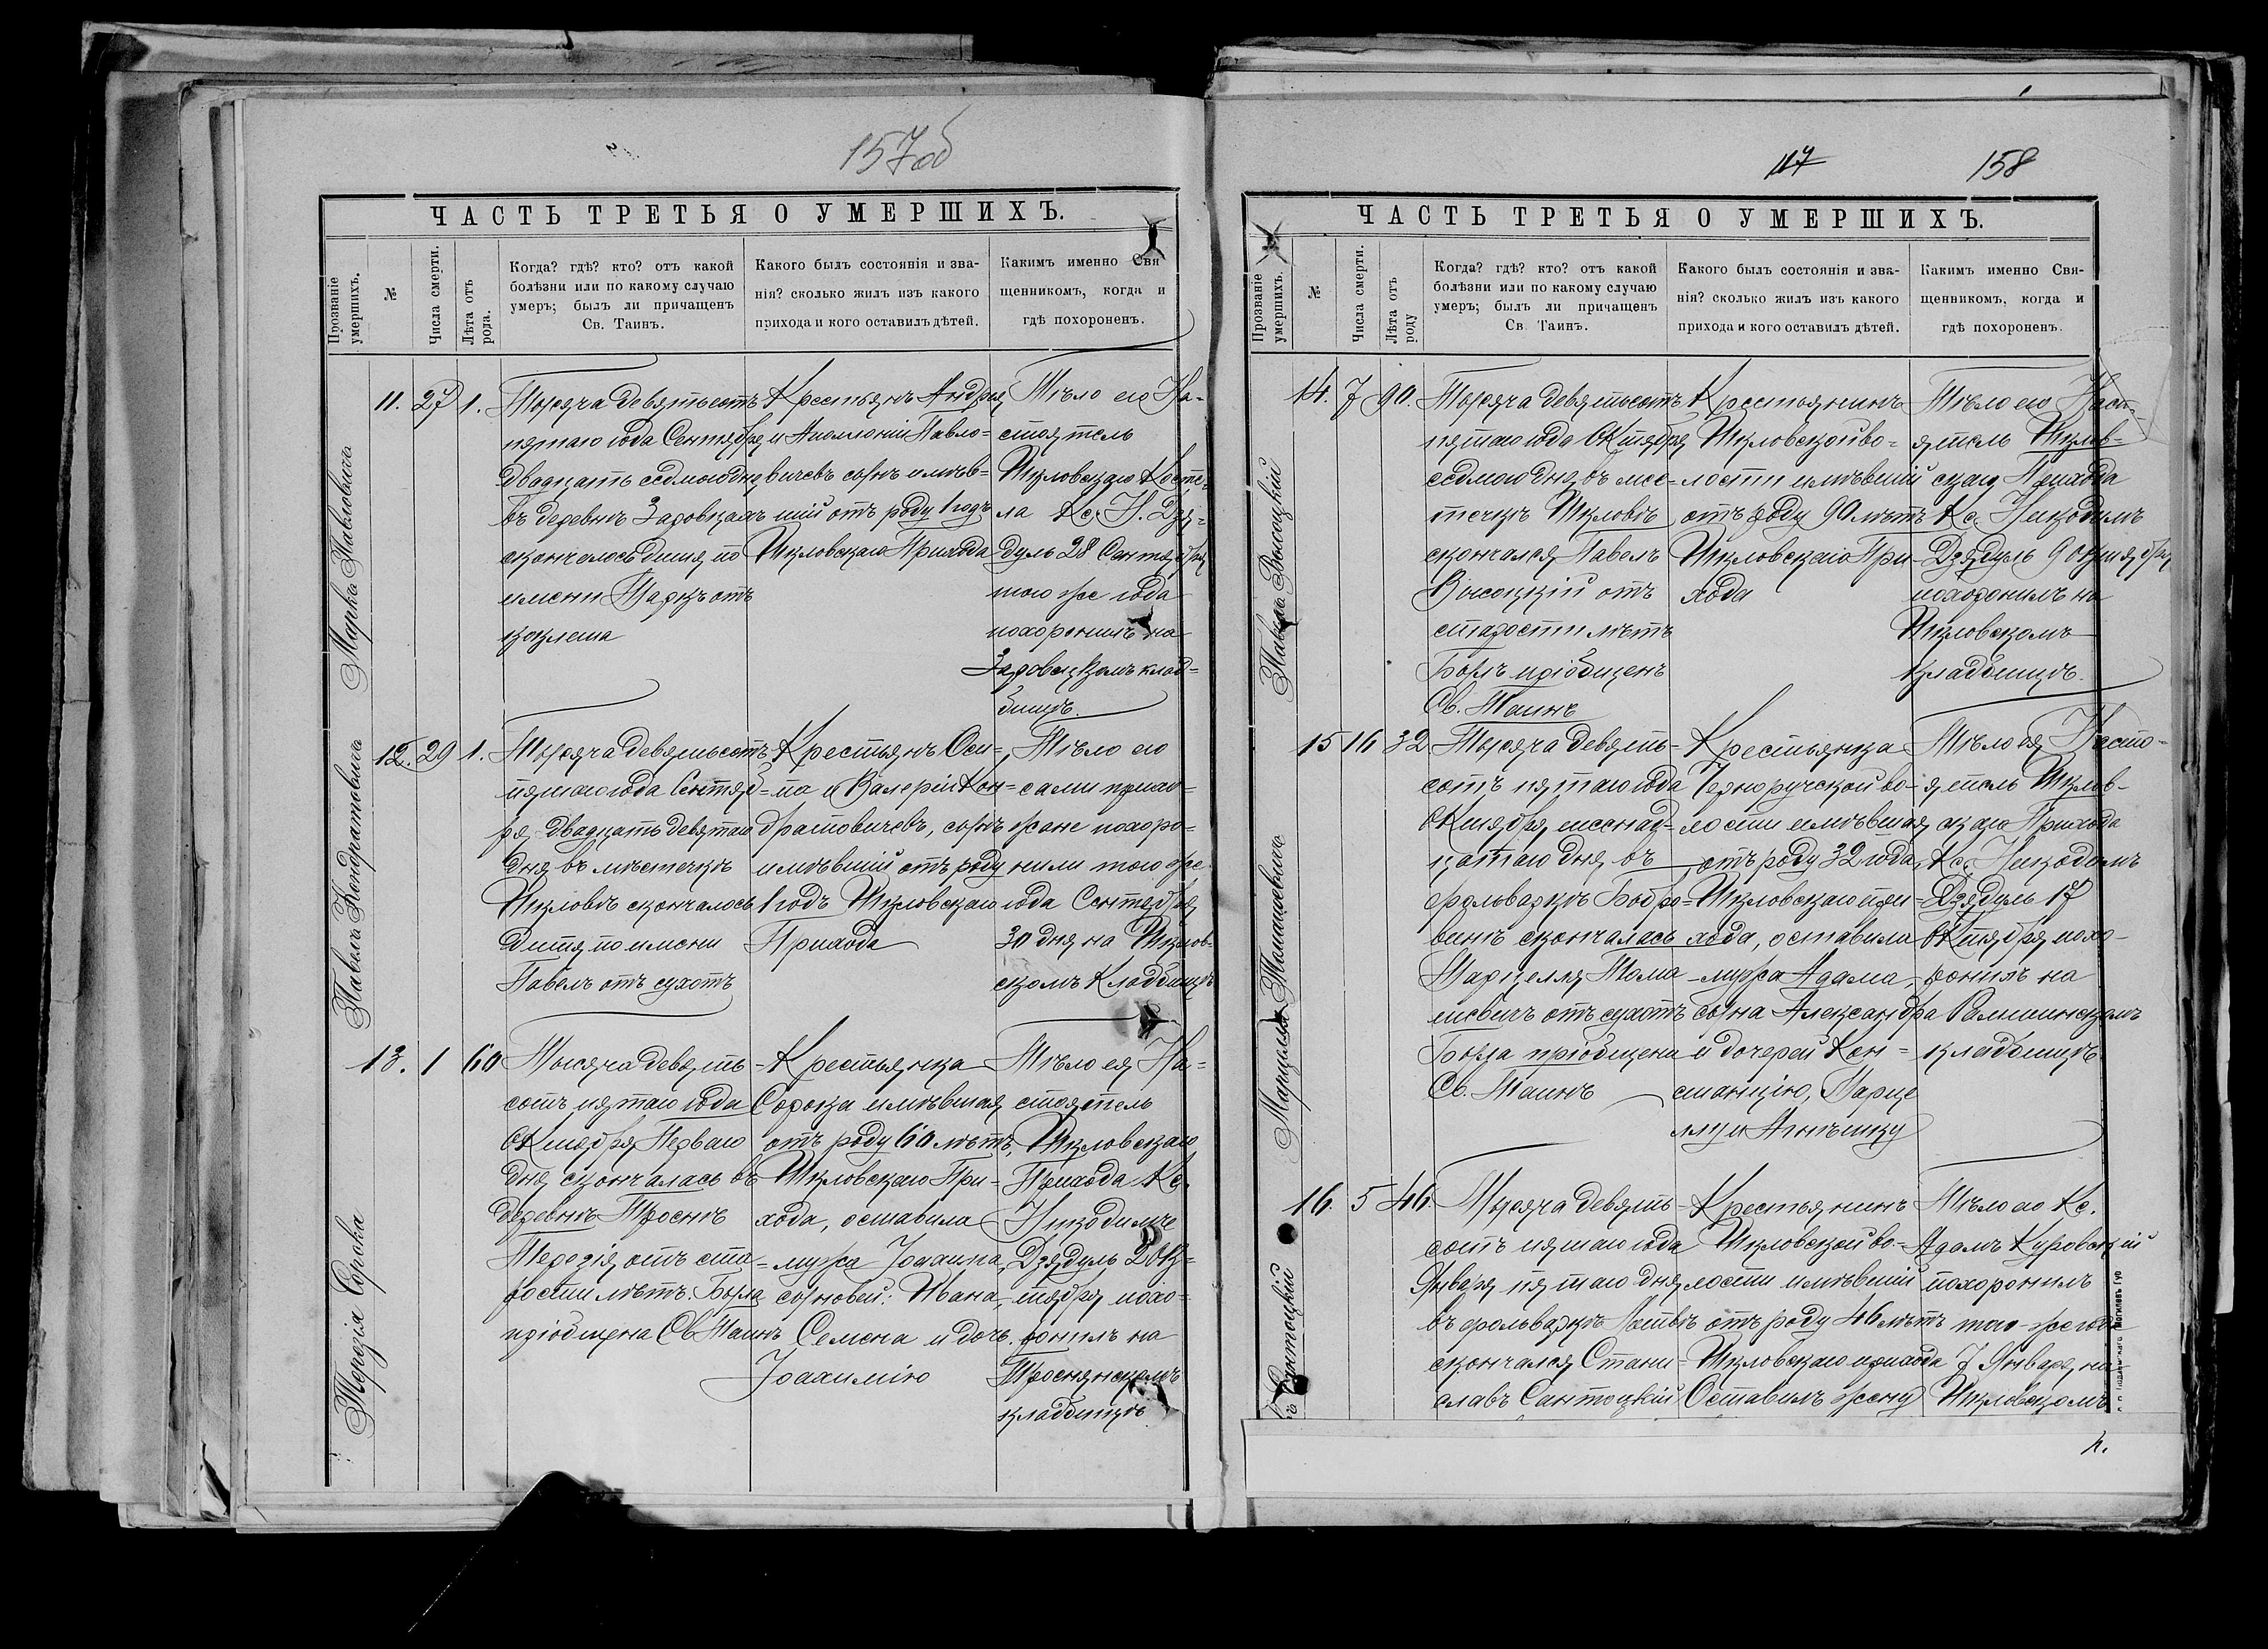 157об
ЧАСТЬ ТРЕТЬЯ О УМЕРШИХЪ.
Прозваніе умершихъ.
№
Числа смерти.
Лѣта отъ рода.
Когда? гдѣ? кто? отъ какой
болѣзни или по какому случаю
умеръ; былъ ли причащенъ
Св. Таинъ.
Какого былъ состоянія и зва-
нія? сколько жилъ изъ какого
прихода и кого оставилъ дѣтей.
Какимъ именно Свя
щенникомъ, когда и
гдѣ похороненъ.
Марка Павловича
11. 27 1.
Тысяча девятьсотъ
пятаго года Сентября
двадцать седмого дня
въ деревнѣ Заровцахъ
скончалось дитя по
имени Маркъ отъ
коклюша
Крестьянъ Андрея
и Аполлоніи Павло=
вичевъ сынъ имѣв=
шій отъ роду 1 годъ
Шкловскаго Прихода
Тѣло его На-
стоятель
Шкловскаго Косте-
ла Кс. Н. Дзя=
дуль 28 Сентября
того же года
похоронилъ на
Заровецкомъ клад=
бищѣ.
Павла Кондратовича
12. 29 1.
Тысяча девятьсотъ
пятаго года Сентяб=
ря двадцать девятаго
дня въ мѣстечкѣ
Шкловѣ скончалось
дитя по имени
Павелъ отъ сухотъ
Крестьянъ Оси=
па и Валеріи Кон=
дратовичевъ, сынъ
имѣвшій отъ роду
1 годъ Шкловскаго
Прихода
Тѣло его
сами прихо=
жане похоро=
нили того же
года Сентября
30 дня на Шклов-
скомъ Кладбищѣ
Терезія Сорока
13. 1 60
Тысяча девять=
сотъ пятаго года
Октября Перваго
дня скончалась въ
деревнѣ Троснѣ
Терезія отъ ста=
рости лѣтъ. Была
пріобщена Св Таинъ
Крестьянка
Сорока имѣвшая
отъ роду 60 лѣтъ,
Шкловскаго При-
хода, оставила
мужа Іоахима,
сыновей: Ивана,
Семена и дочь
Іоахимію
Тѣло ея На=
стоятель
Шкловскаго
Прихода Кс.
Никодимъ
Дзядуль 2 Ок=
тября похо=
ронилъ на
Троснянскомъ
кладбищѣ
117 158
ЧАСТЬ ТРЕТЬЯ О УМЕРШИХЪ.
Прозваніе умершихъ.
№
Числа смерти.
Лѣта отъ роду
Когда? гдѣ? кто? отъ какой
болѣзни или по какому случаю
умеръ; былъ ли причащенъ
Св. Таинъ.
Какого былъ состоянія и зва-
нія? сколько жилъ изъ какого
прихода и кого оставилъ дѣтей.
Какимъ именно Свя-
щенникомъ, когда и
гдѣ похороненъ.
Павла Высоцкій
14. 7 90.
Тысяча девятьсотъ
пятаго года Октября
седмого дня въ мѣс-
течкѣ Шкловѣ
скончался Павелъ
Высоцкій отъ
старости лѣтъ
Былъ пріобщенъ
Св. Таинъ
Крестьянинъ
Шкловской во=
лости имѣвшій
отъ роду 90 лѣтъ
Шкловскаго При-
хода
Тѣло его Насто-
ятель Шклов-
скаго Прихода
Кс. Никодимъ
Дзядуль 9 октября
похоронилъ на
Шкловскомъ
кладбищѣ.
Марцелля Томашевичъ
15 16 32
Тысяча девять-
сотъ пятаго года
Октября шестнад=
цатаго дня въ
фольваркѣ Бодро=
винъ скончалась
Марцелля Тома
шевичъ отъ сухотъ
Была пріобщена
Св. Таинъ
Крестьянка
Черноручской во-
лости имѣвшая
отъ роду 32 года,
Шкловскаго при=
хода, оставила
мужа Адама,
сына Александра
и дочерей Кон=
станцію, Марце
ллу и Агнѣшку
Тѣло ея Насто-
ятель Шклов-
скаго Прихода
Кс. Никодимъ
Дзядуль 17
Октября похо-
ронилъ на
кладбищѣ
Сантоцкій
16. 5 46.
Тысяча девять
сотъ пятаго года
Января пятаго дня
въ фольваркѣ
скончался Стани=
славъ Сантоцкій
Крестьянинъ
Шкловской во-
лости имѣвшій
отъ роду 46 лѣтъ
Шкловскаго прихода
Оставилъ жену
Тѣло его Кс.
Адамъ Куровскій
похоронилъ
того-же года
7 Января на
Шкловскомъ